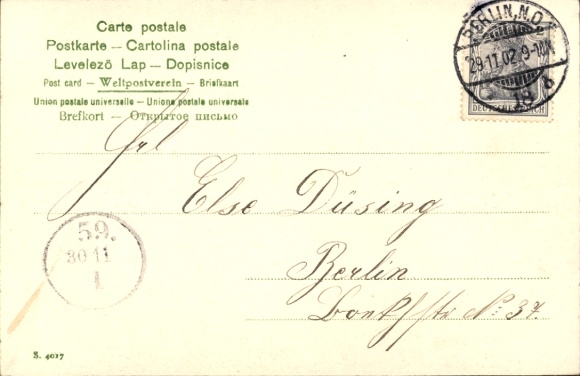 Carte postale
Postkarte — Cartolina postale
Levelező Lap — Dopisnice
Post card — Weltpostverein — Briefkaart
Union postale universelle — Unione postale universale
Brefkort — Открытое письмо
BERLIN, N.O.
29.11.02. 9-10N.
18 b
DEUTSCHES REICH
Frl
Else Düsing
Berlin
No: 37.
59.
30 11
1
S. 4017